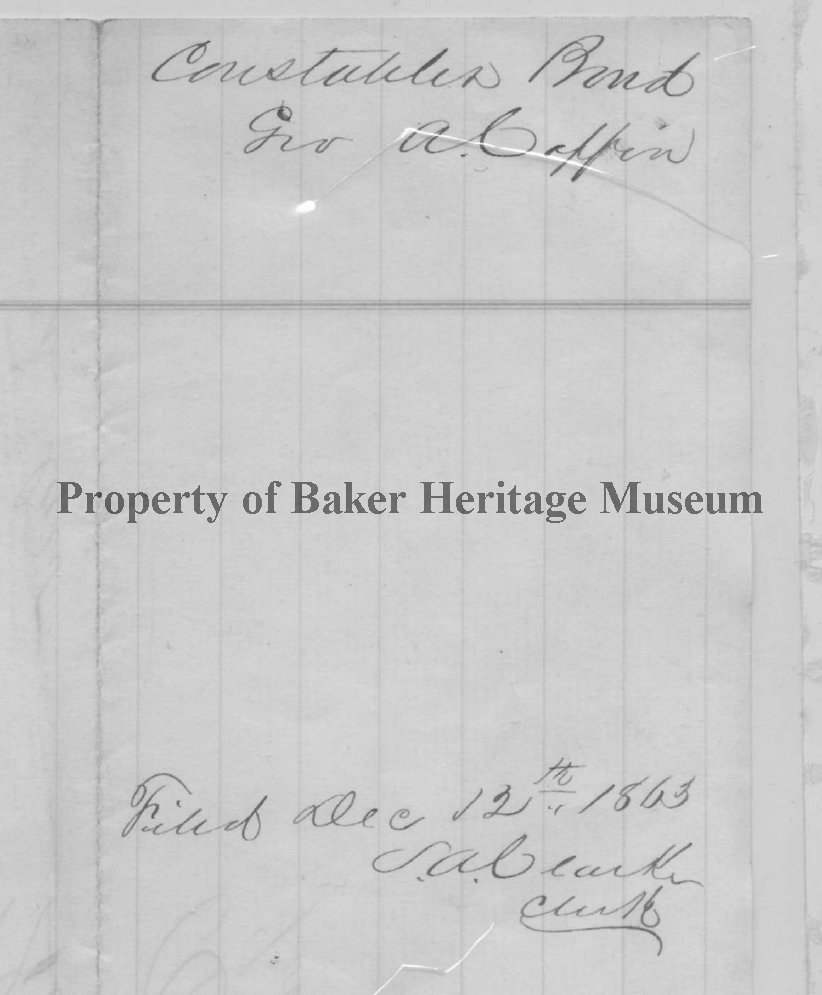 Constables Bond
Geo A. Coffin
Property of Baker Heritage Museum
Filed Dec 12th 1863
S. A. Clarke
Clerk